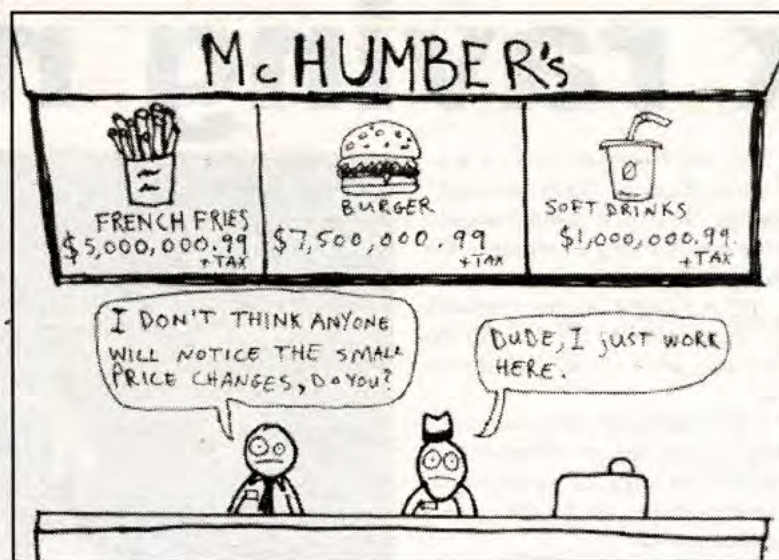 McHUMBER's
FRENCH FRIES
$5,000,000.99
+TAX
BURGER
$7,500,000.99
+TAX
SOFT DRINKS
$1,000,000.99
+TAX
I DON'T THINK ANYONE
WILL NOTICE THE SMALL
PRICE CHANGES, DO YOU?
DUDE, I JUST WORK
HERE.